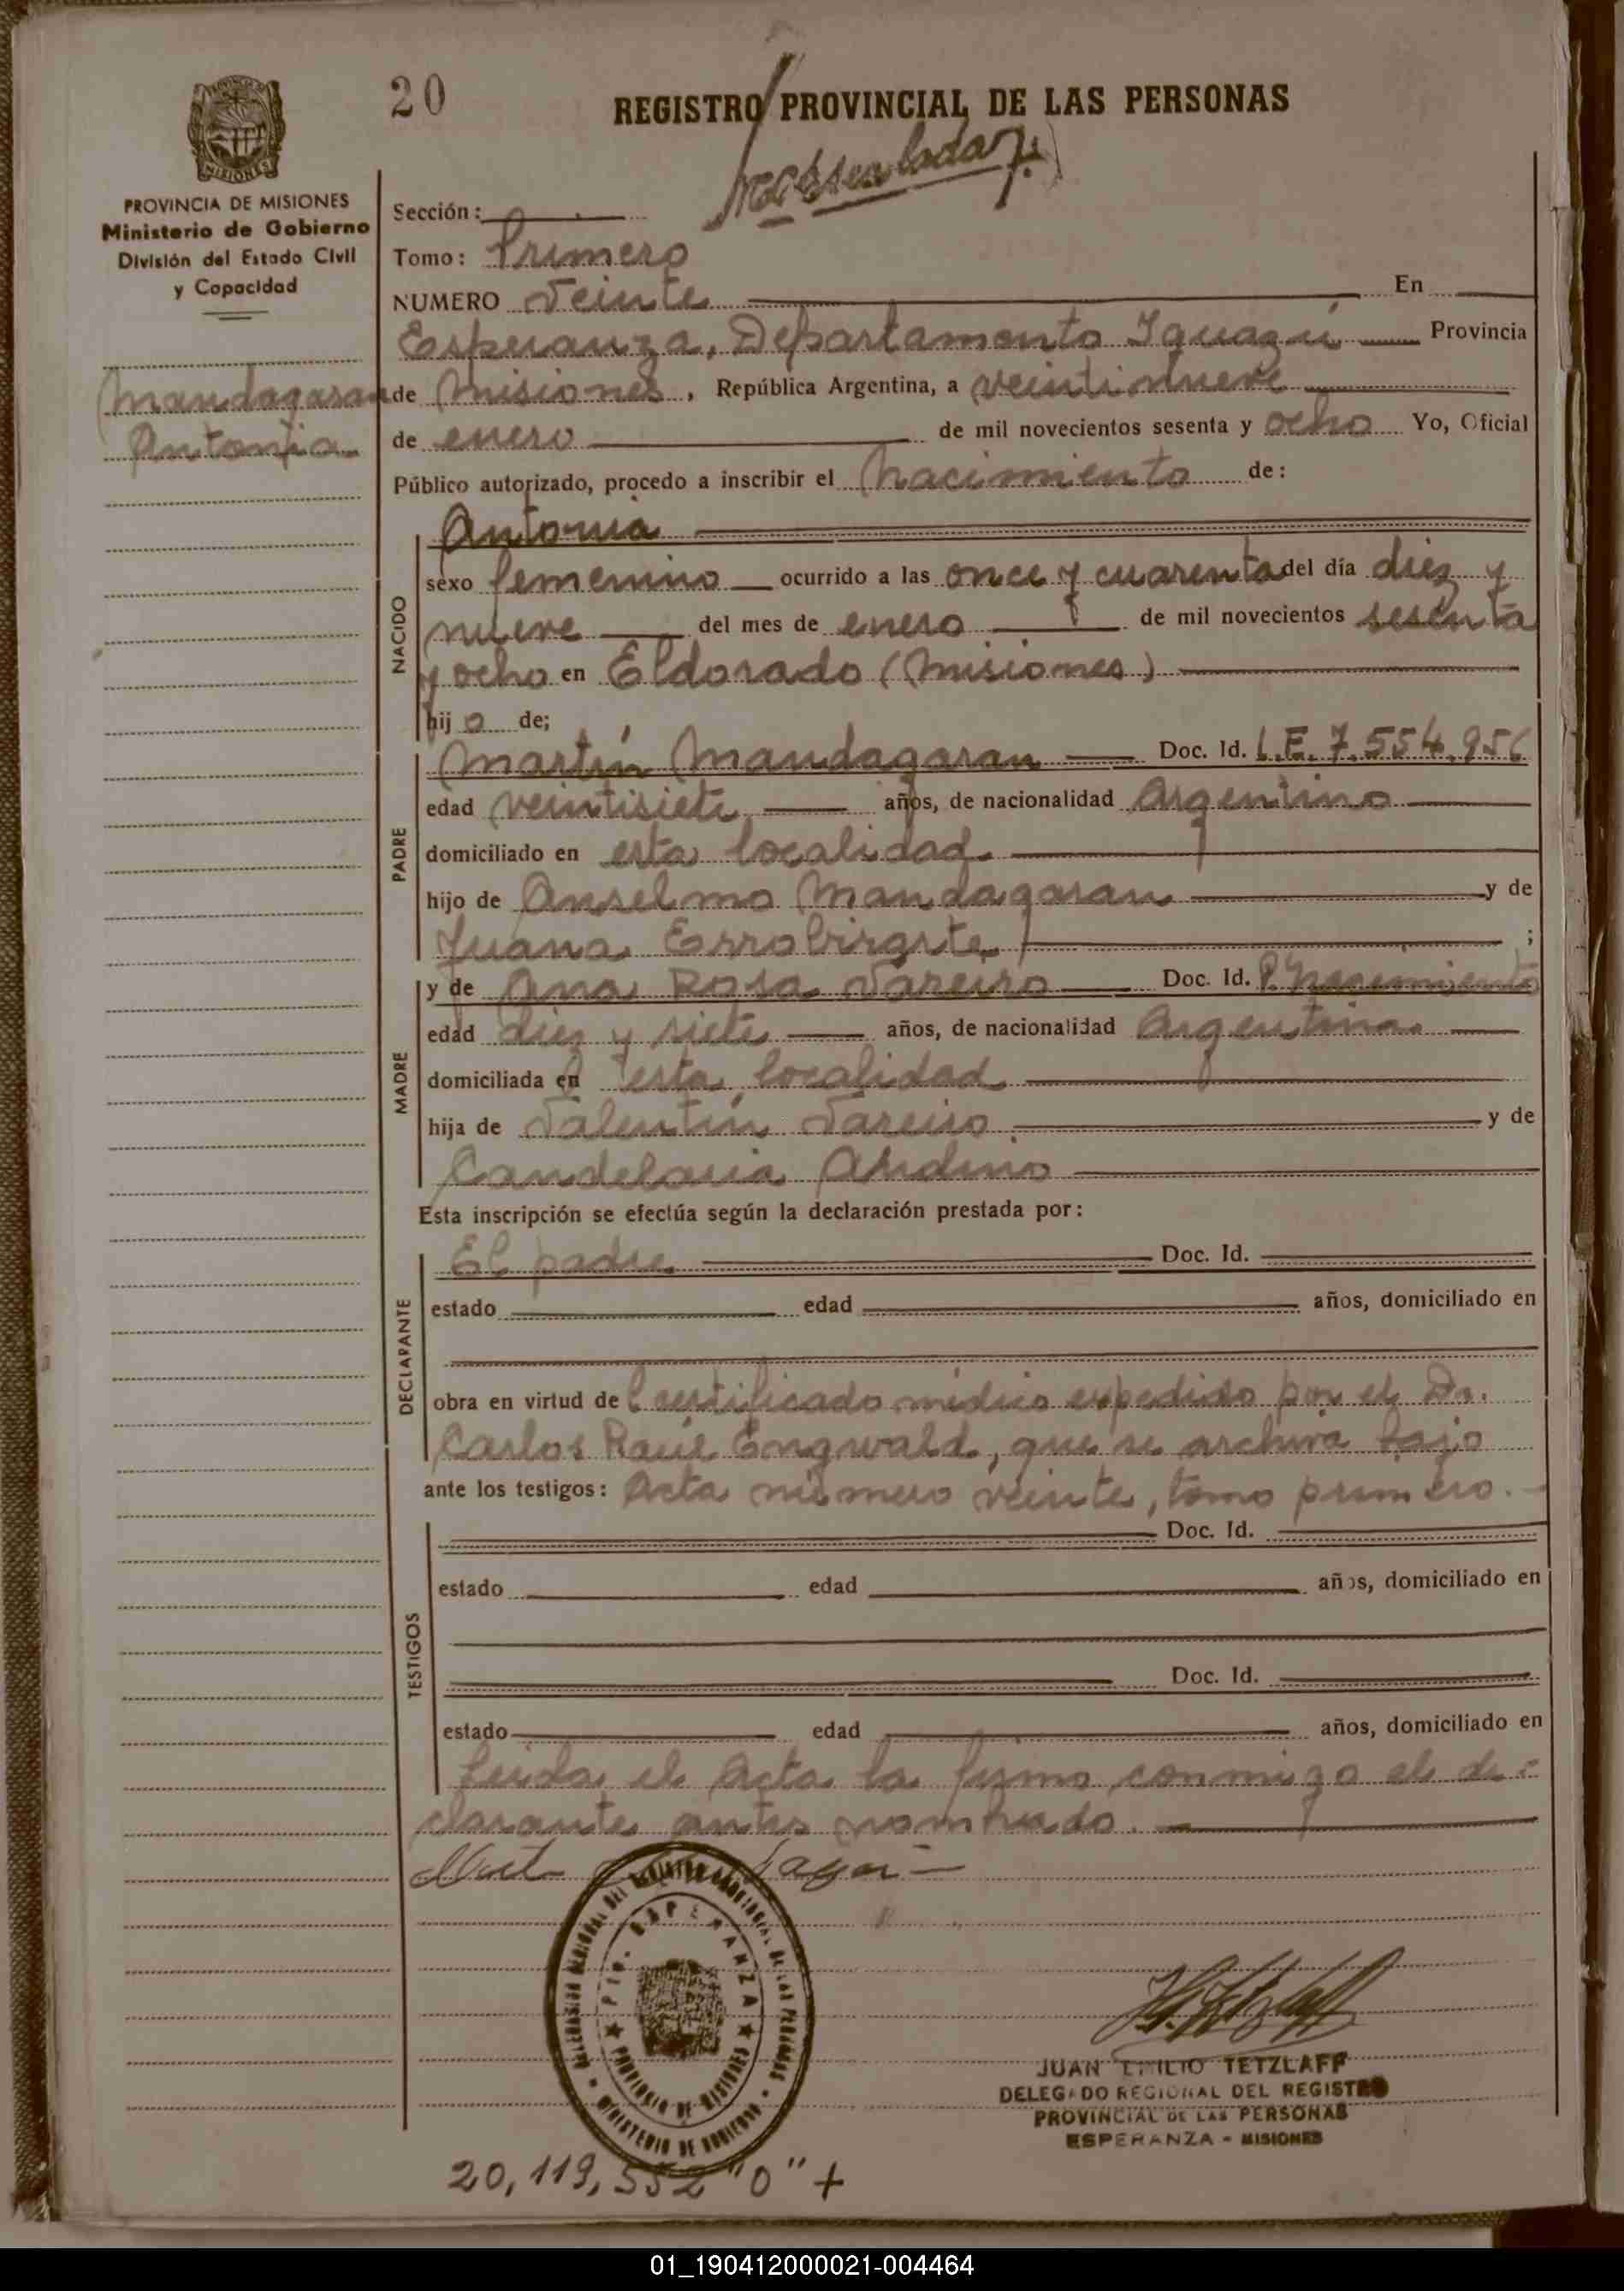 20
REGISTRO PROVINCIAL DE LAS PERSONAS
MISIONES
PROVINCIA DE MISIONES
Ministerio de Gobierno
División del Estado Civil
y Capacidad
Mandagaran
Antonia
Sección:
Tomo: Primero
NUMERO Veinte En
Esperanza, Departamento Iguazú Provincia
de Misiones, República Argentina, a veintinueve
de enero de mil novecientos sesenta y ocho Yo, Oficial
Público autorizado, procedo a inscribir el nacimiento de:
NACIDO
Antonia
sexo femenino ocurrido a las once y cuarenta del día diez y
nueve del mes de enero de mil novecientos sesenta
y ocho en Eldorado (Misiones)
hij a de;
PADRE
Martín Mandagaran Doc. Id. L.E. 7.554.956
edad veintisiete años, de nacionalidad Argentino
domiciliado en esta localidad
hijo de Anselmo Mandagaran y de
Juana ;
MADRE
y de Ana Rosa Vareiro Doc. Id. P. Nacimiento
edad diez y siete años, de nacionalidad Argentina
domiciliada en esta localidad
hija de Valentín Vareiro y de
Candelaria Andino
Esta inscripción se efectúa según la declaración prestada por:
DECLARANTE
El padre Doc. Id.
estado edad años, domiciliado en
obra en virtud de Certificado médico expedido por el Dr.
Carlos Raúl Engwald, que se archiva bajo
ante los testigos: Acta número veinte, tomo primero.-
TESTIGOS
Doc. Id.
estado edad años, domiciliado en
Doc. Id.
estado edad años, domiciliado en
Leida el Acta la firma conmigo el de-
clarante antes nombrado.
PTO. ESPERANZA
PROVINCIA DE MISIONES
MINISTERIO DE GOBIERNO
JUAN EMILIO TETZLAFF
DELEGADO REGIONAL DEL REGISTRO
PROVINCIAL DE LAS PERSONAS
ESPERANZA - MISIONES
20,119,552 "0" +
01_190412000021-004464